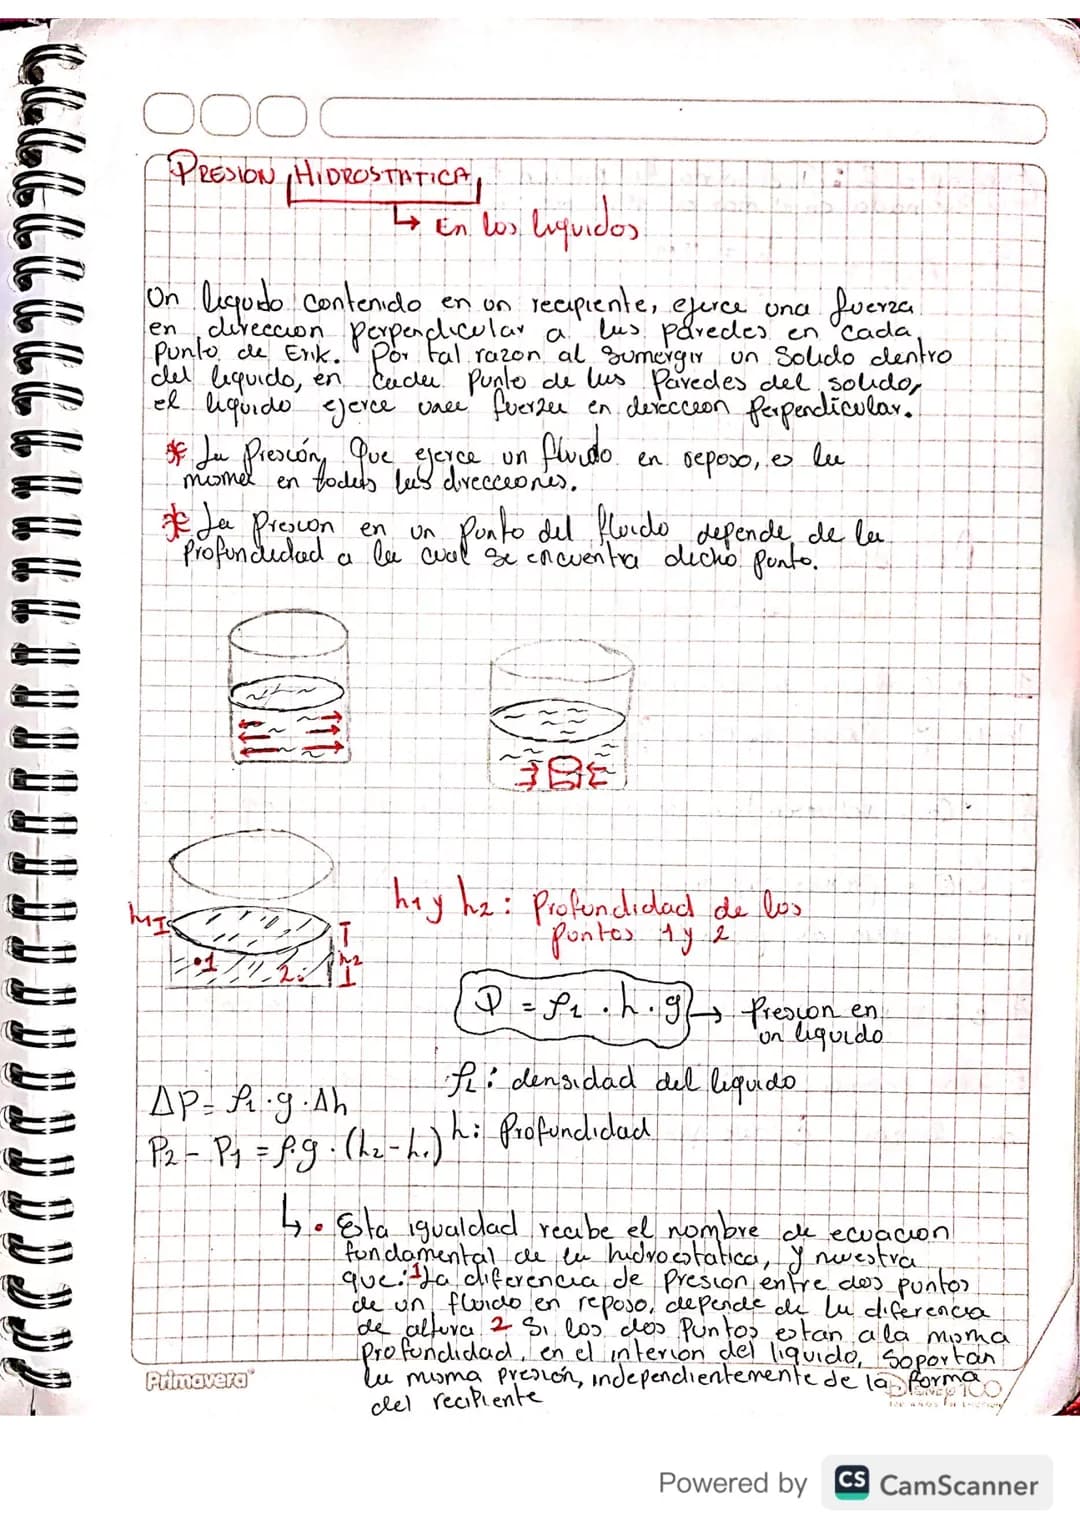 PRESION HIDROSTATICA
↳ En los liquidos
Un liquido contenido en un recipiente, ejerce una fuerza
en direccion perpendicular a las paredes en cada
Punto de Erik. Por tal razon al sumergir un solido dentro
del liquido, en cada punto de las Paredes del solido,
el liquido ejerce una fuerza en direccion perpendicular.
* La Presión Que ejerce un fluido en reposo, es la
misma en todas las direcciones.
* La Presion en un punto del fluido depende de la
Profundidad a la cual se encuentra dicho punto.
h1
•1
2.
h2
h1 y h2: Profundidad de los
puntos 1 y 2
P = ρL . h . g → Presion en
un liquido
ρL: densidad del liquido
h: Profundidad
ΔP = ρL · g · Δh
P2 - P1 = ρ.g · (h2-h1)
↳ • Esta igualdad recibe el nombre de ecuacion
fundamental de la hidrostatica, y nuestra
que: 1 La diferencia de Presion entre dos puntos
de un fluido en reposo, depende de la diferencia
de altura 2 Si los dos Puntos estan a la misma
Profundidad, en el interior del liquido, soportan
la misma presión, independientemente de la forma
del recipiente
Primavera
DISNEY 100
Powered by CS CamScanner